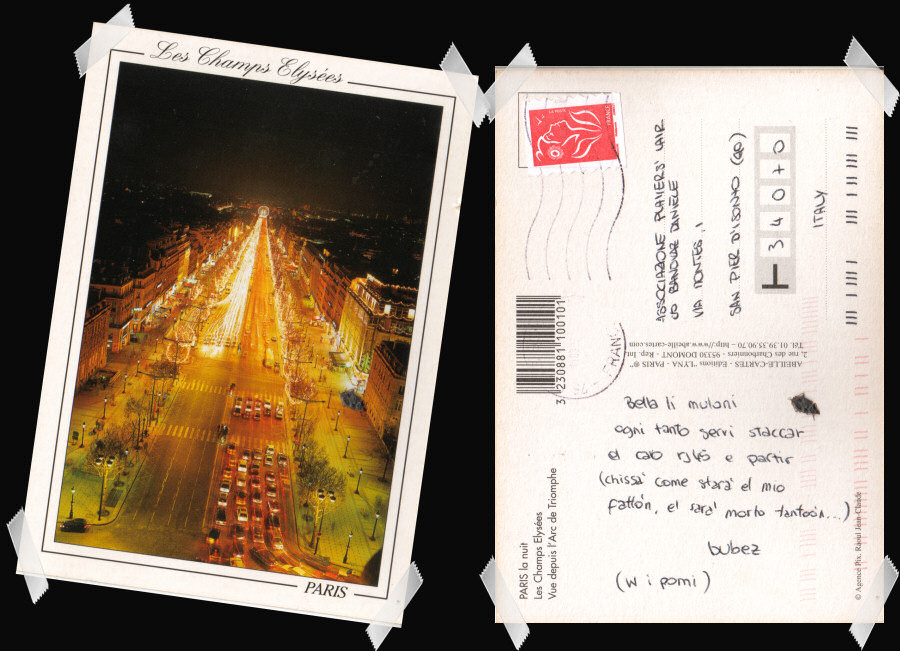 Les Champs Elysées
PARIS
FRANCE
ASSOCIAZIONE PLAYERS' LAIR
c/o BANOVAZ DANIELE
VIA MONTES, 1
SAN PIER D'ISONZO (GO)
I-34070
ITALY
3 230881 100101
ABEILLE-CARTES - Editions "LYNA - PARIS ®"
2, rue des Charbonniers - 95330 DOMONT - Rep. Int.
Tél. 01.39.35.90.70 - http://www.abeille-cartes.com
Bella li mulani
ogni tanto servi staccar
el cavo rj45 e partir
(chissà come starà el mio
fattòn, el sarà morto tantoòn...)
bubez
(w i pomi)
PARIS la nuit
Les Champs Elysées
Vue depuis l'Arc de Triomphe
© Agence Pix, Raoul Jean-Claude